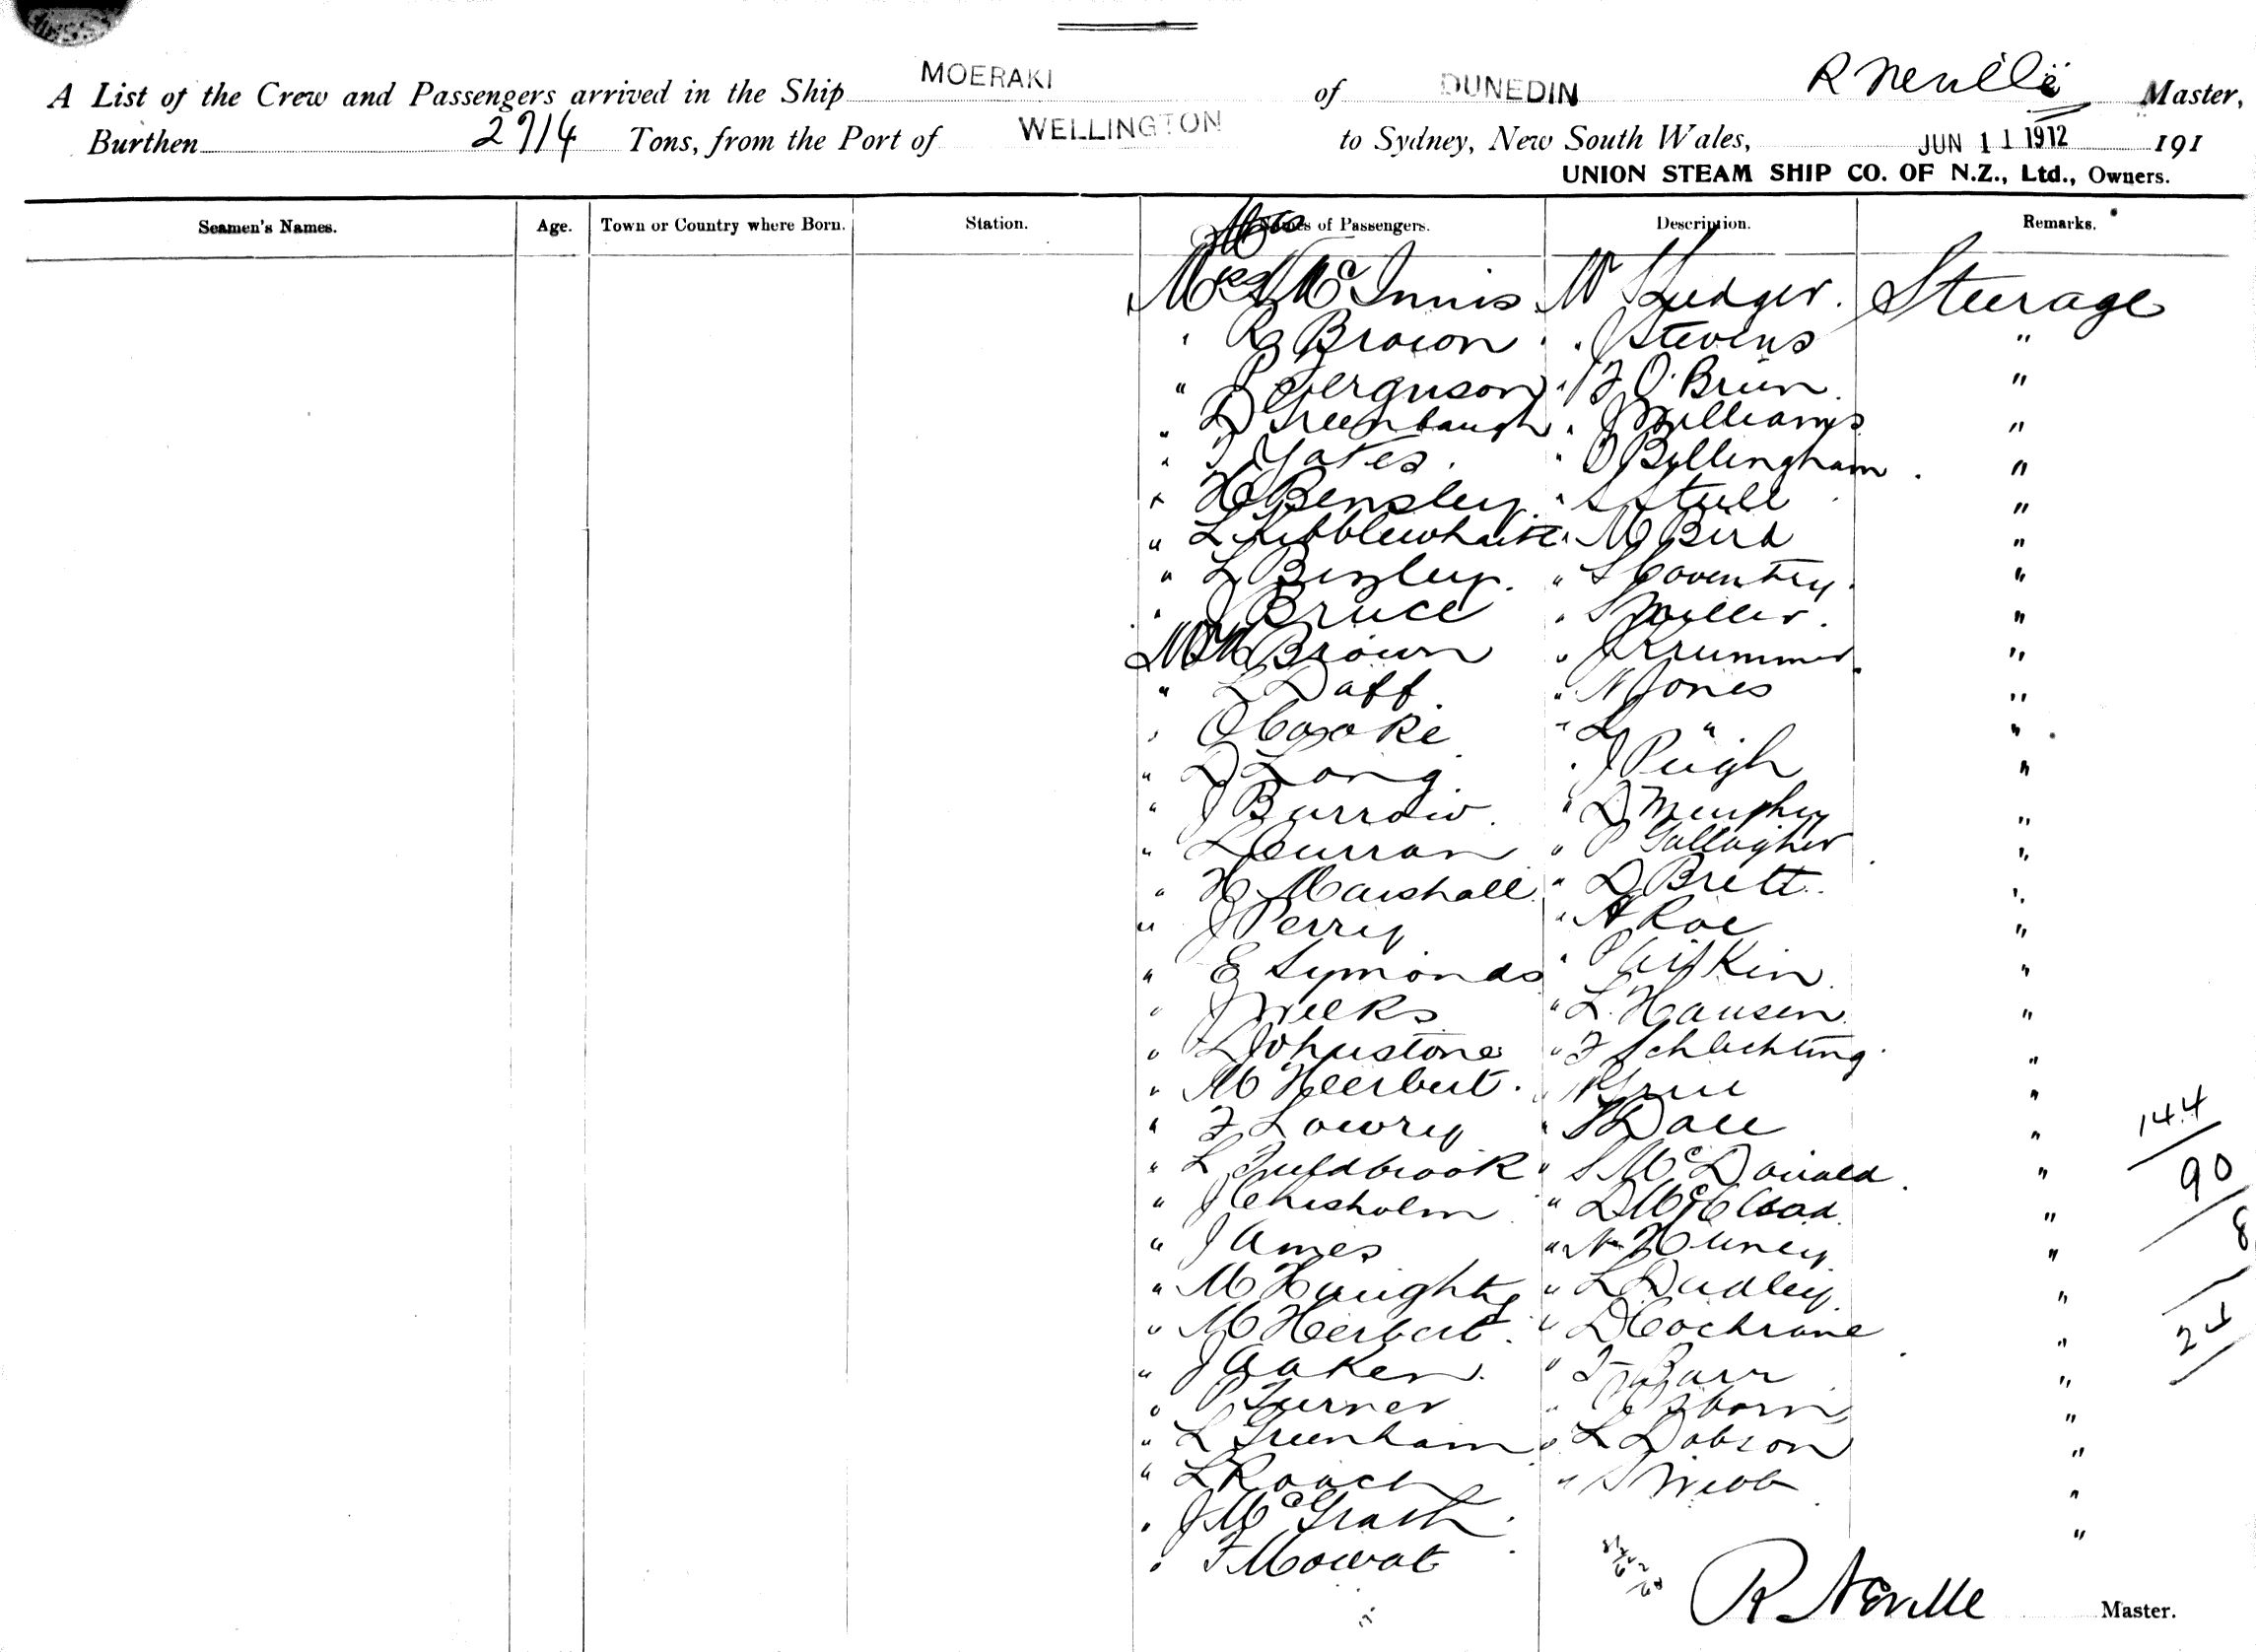 A List of the Crew and Passengers arrived in the Ship MOERAKI of DUNEDIN R Neville Master,
Burthen 2714 Tons, from the Port of WELLINGTON to Sydney, New South Wales, JUN 11 1912 191
UNION STEAM SHIP CO. OF N.Z., Ltd., Owners.
Seamen's Names. Age. Town or Country where Born. Station. Names of Passengers. Description. Remarks.
McInnis Mr Steerage
" R Brown " J Stevens "
" Ferguson " F O'Brien "
" D Greenbaugh " J Williams "
" Yates " Bellingham "
" H Bensley " S Stull "
" L Kibblewhaite " M Bird "
" L Bezley " S Coventry "
" J Bruce " S Miller "
Mr Brown " J Krummer "
" L Daff " N Jones "
" O Cooke " L " "
" D Long " J Pugh "
" J Burrow " D Murphy "
" L Curran " P Gallagher "
" H Marshall " D Brett "
" J Perry " A Roe "
" E Symonds " P "
" J Weeks " L. Hansen "
" L Johnstone " F Schlichting "
" M Heerbert " "
" F Lowry " "
" L " S McDonald "
" J Chisholm " D "
" J Ames " N "
" M Haughty " L Dudley "
" M Herbert " D Cochrane "
" J Oaken " F Barr "
" P Turner " Osborn "
" L Greenham " L Dobson "
" L Roach " S Webb "
" J McGrath "
" F Mowat
144
90
8
24
R Neville Master.